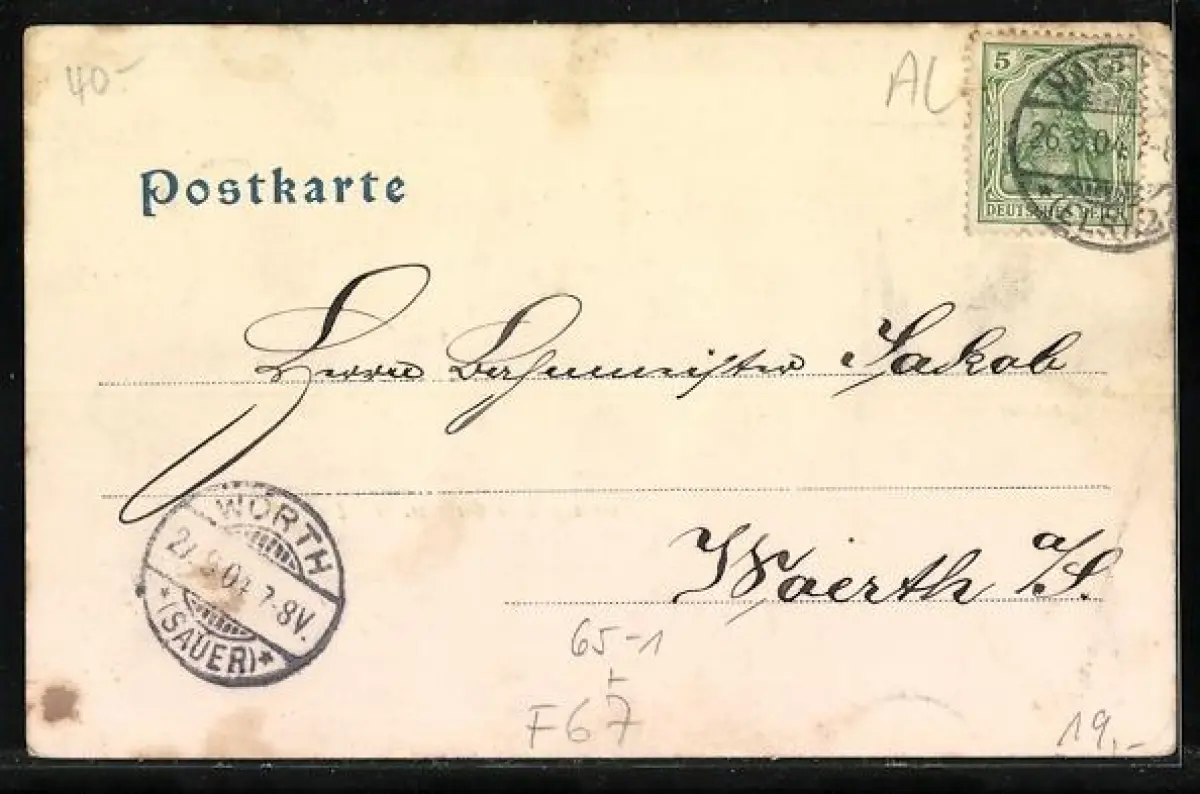 40.-
AL
5
26.9.04. 7-8
DEUTSCHES REICH
Postkarte
Herrn Bahnmeister Jakob
Woerth a/S.
WÖRTH
27.9.04. 7-8V.
*(SAUER)*
65-1
+
F67
19,-